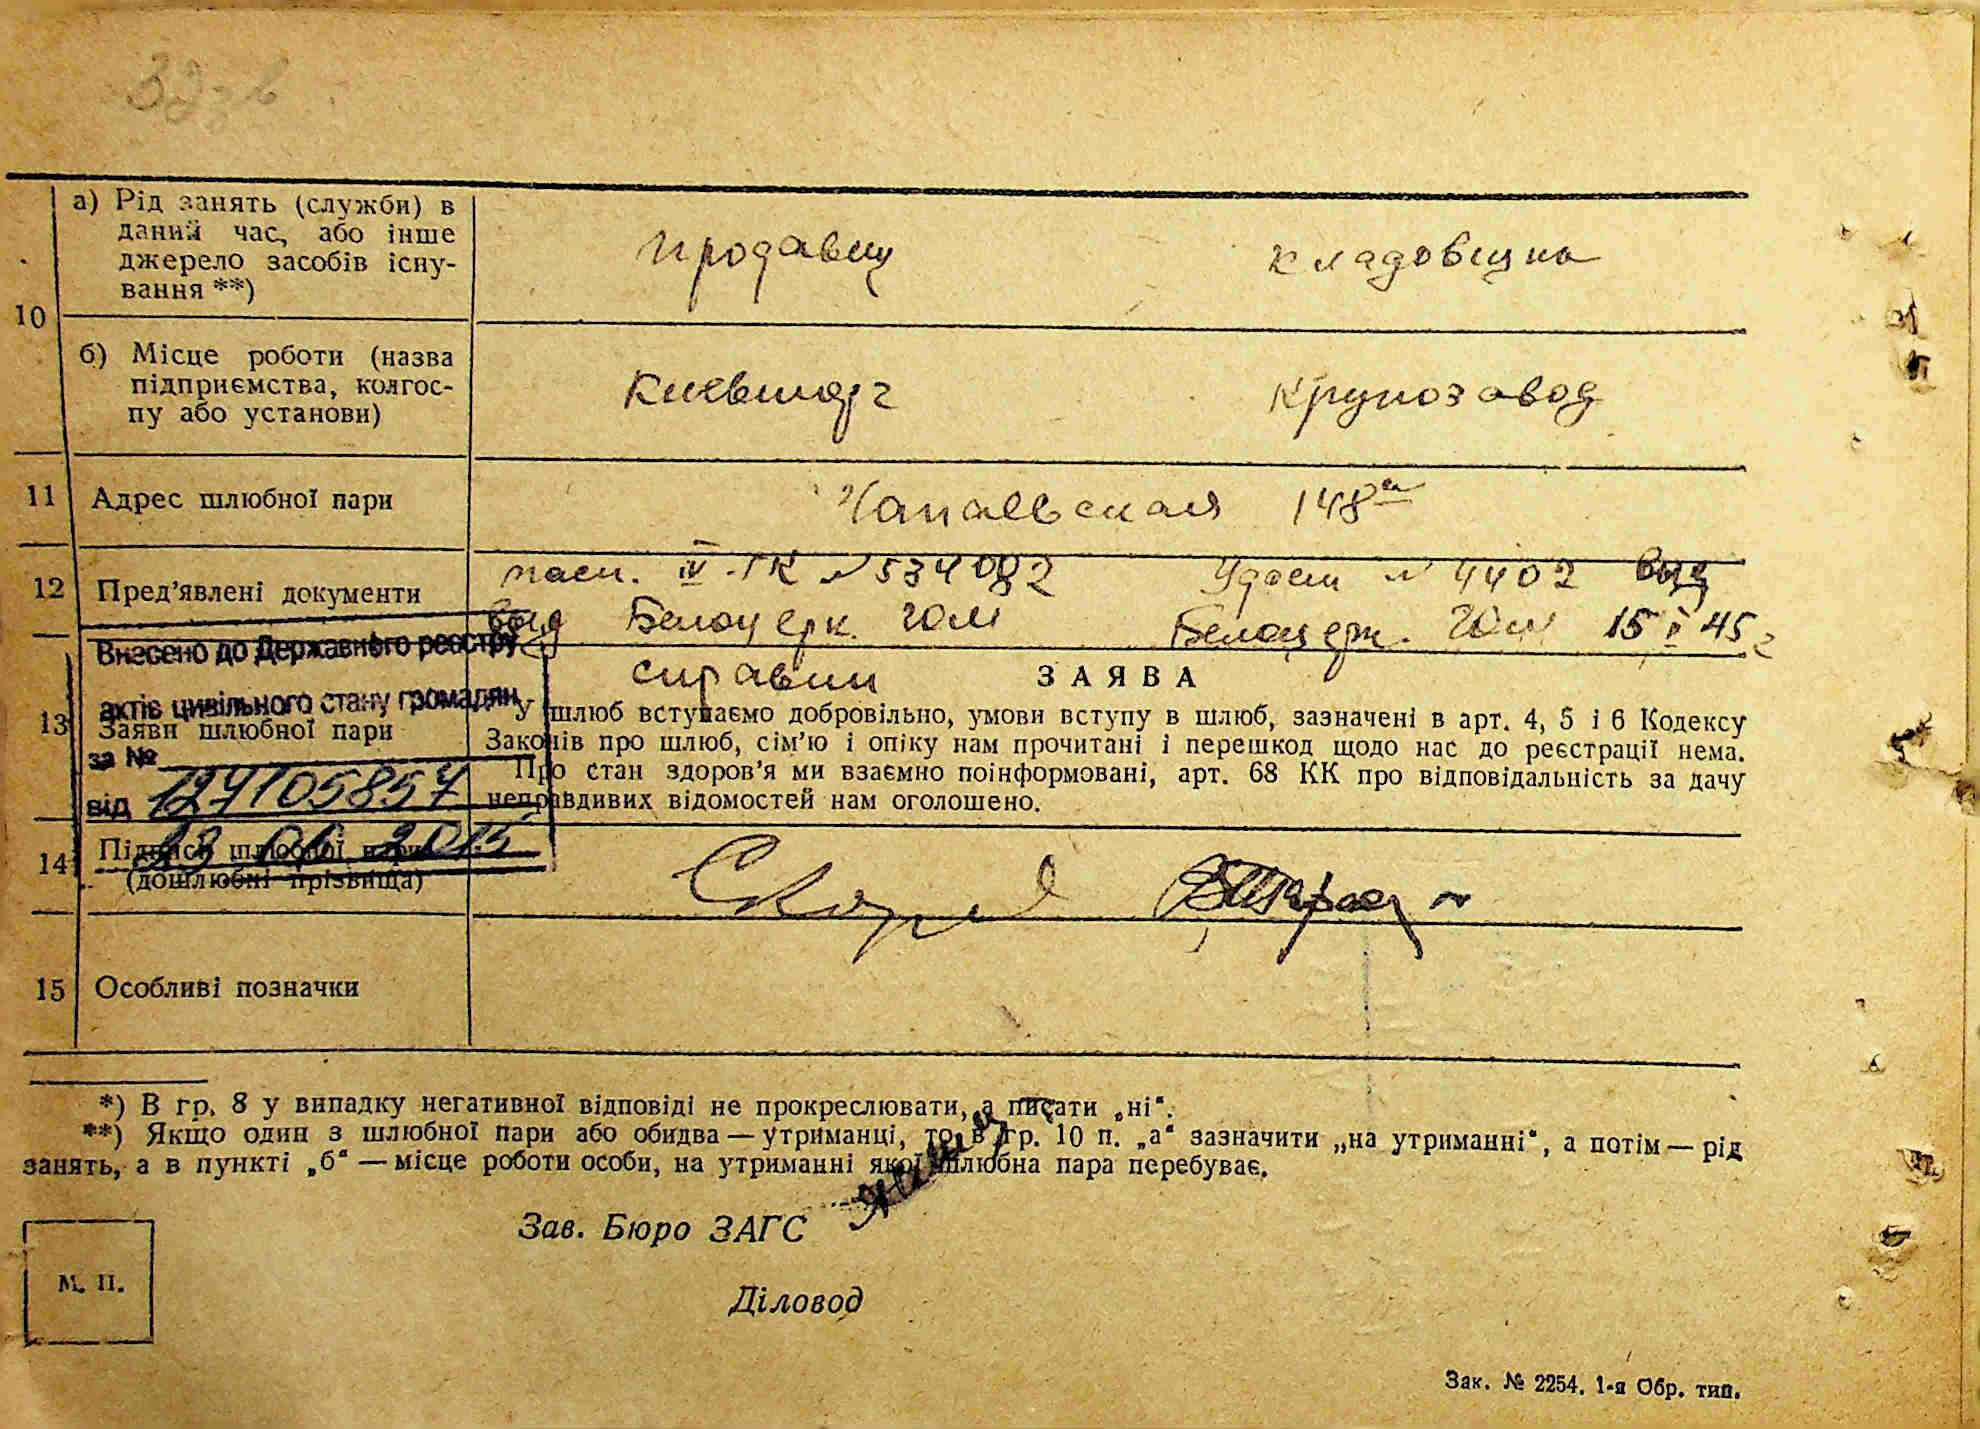 10
а) Рід занять (служби) в
даний час, або інше
джерело засобів існу-
вання **)
продавец
кладовщик
б) Місце роботи (назва
підприємства, колгос-
пу або установи)
Киевторг
Крупозавод
11
Адрес шлюбної пари
Чапаевская 148
12
Пред’явлені документи
пасп. IV-ГК № 534082
выд Белоцерк. ГОМ
справки
Удост № 4402 выд
Белоцерк. ГОМ 15 V 45 г
Внесено до Державного реєстру
актів цивільного стану громадян
за №
від 129105857
23 06 2015
13
Заяви шлюбної пари
ЗАЯВА
У шлюб вступаємо добровільно, умови вступу в шлюб, зазначені в арт. 4, 5 і 6 Кодексу
Законів про шлюб, сім’ю і опіку нам прочитані і перешкод щодо нас до реєстрації нема.
Про стан здоров’я ми взаємно поінформовані, арт. 68 КК про відповідальність за дачу
неправдивих відомостей нам оголошено.
14
Підписи шлюбної пари
(дошлюбні прізвища)
15
Особливі позначки
*) В гр. 8 у випадку негативної відповіді не прокреслювати, а писати „ні“.
**) Якщо один з шлюбної пари або обидва — утриманці, то в гр. 10 п. „а“ зазначити „на утриманні“, а потім — рід
занять, а в пункті „б“ — місце роботи особи, на утриманні якої шлюбна пара перебуває.
Зав. Бюро ЗАГС
Діловод
М. П.
Зак. № 2254. 1-я Обр. тип.